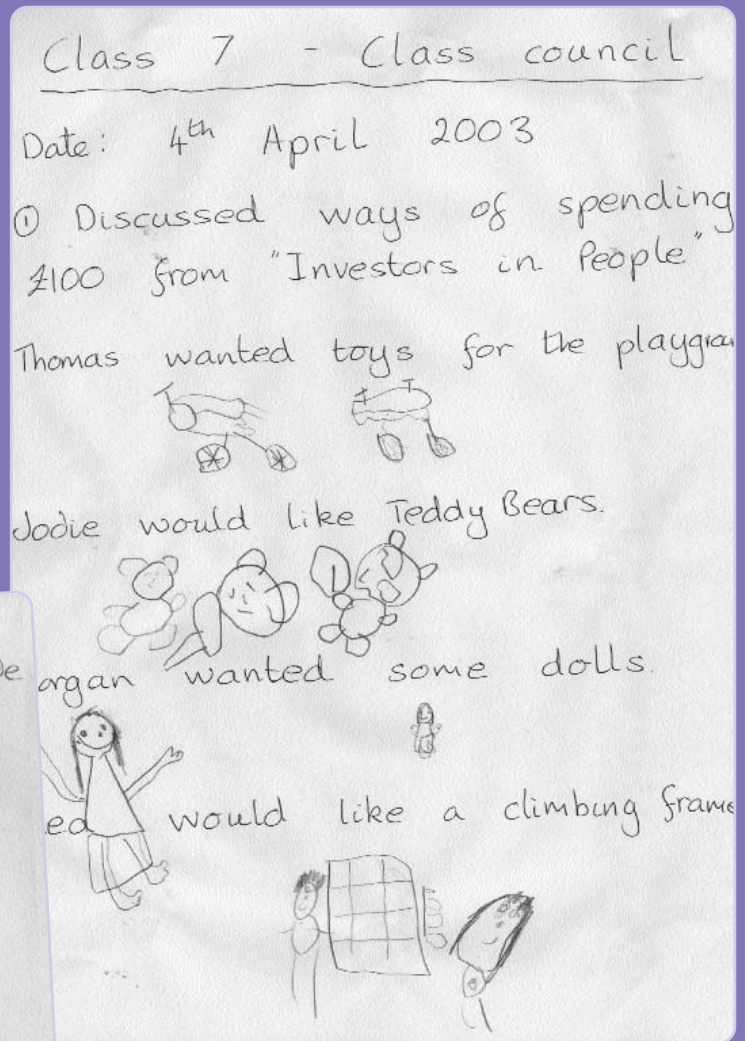 Class 7 - Class council
Date: 4th April 2003
① Discussed ways of spending
£100 from "Investors in People"
Thomas wanted toys for the playgrou
Jodie would like Teddy Bears.
organ wanted some dolls.
ea would like a climbing frame